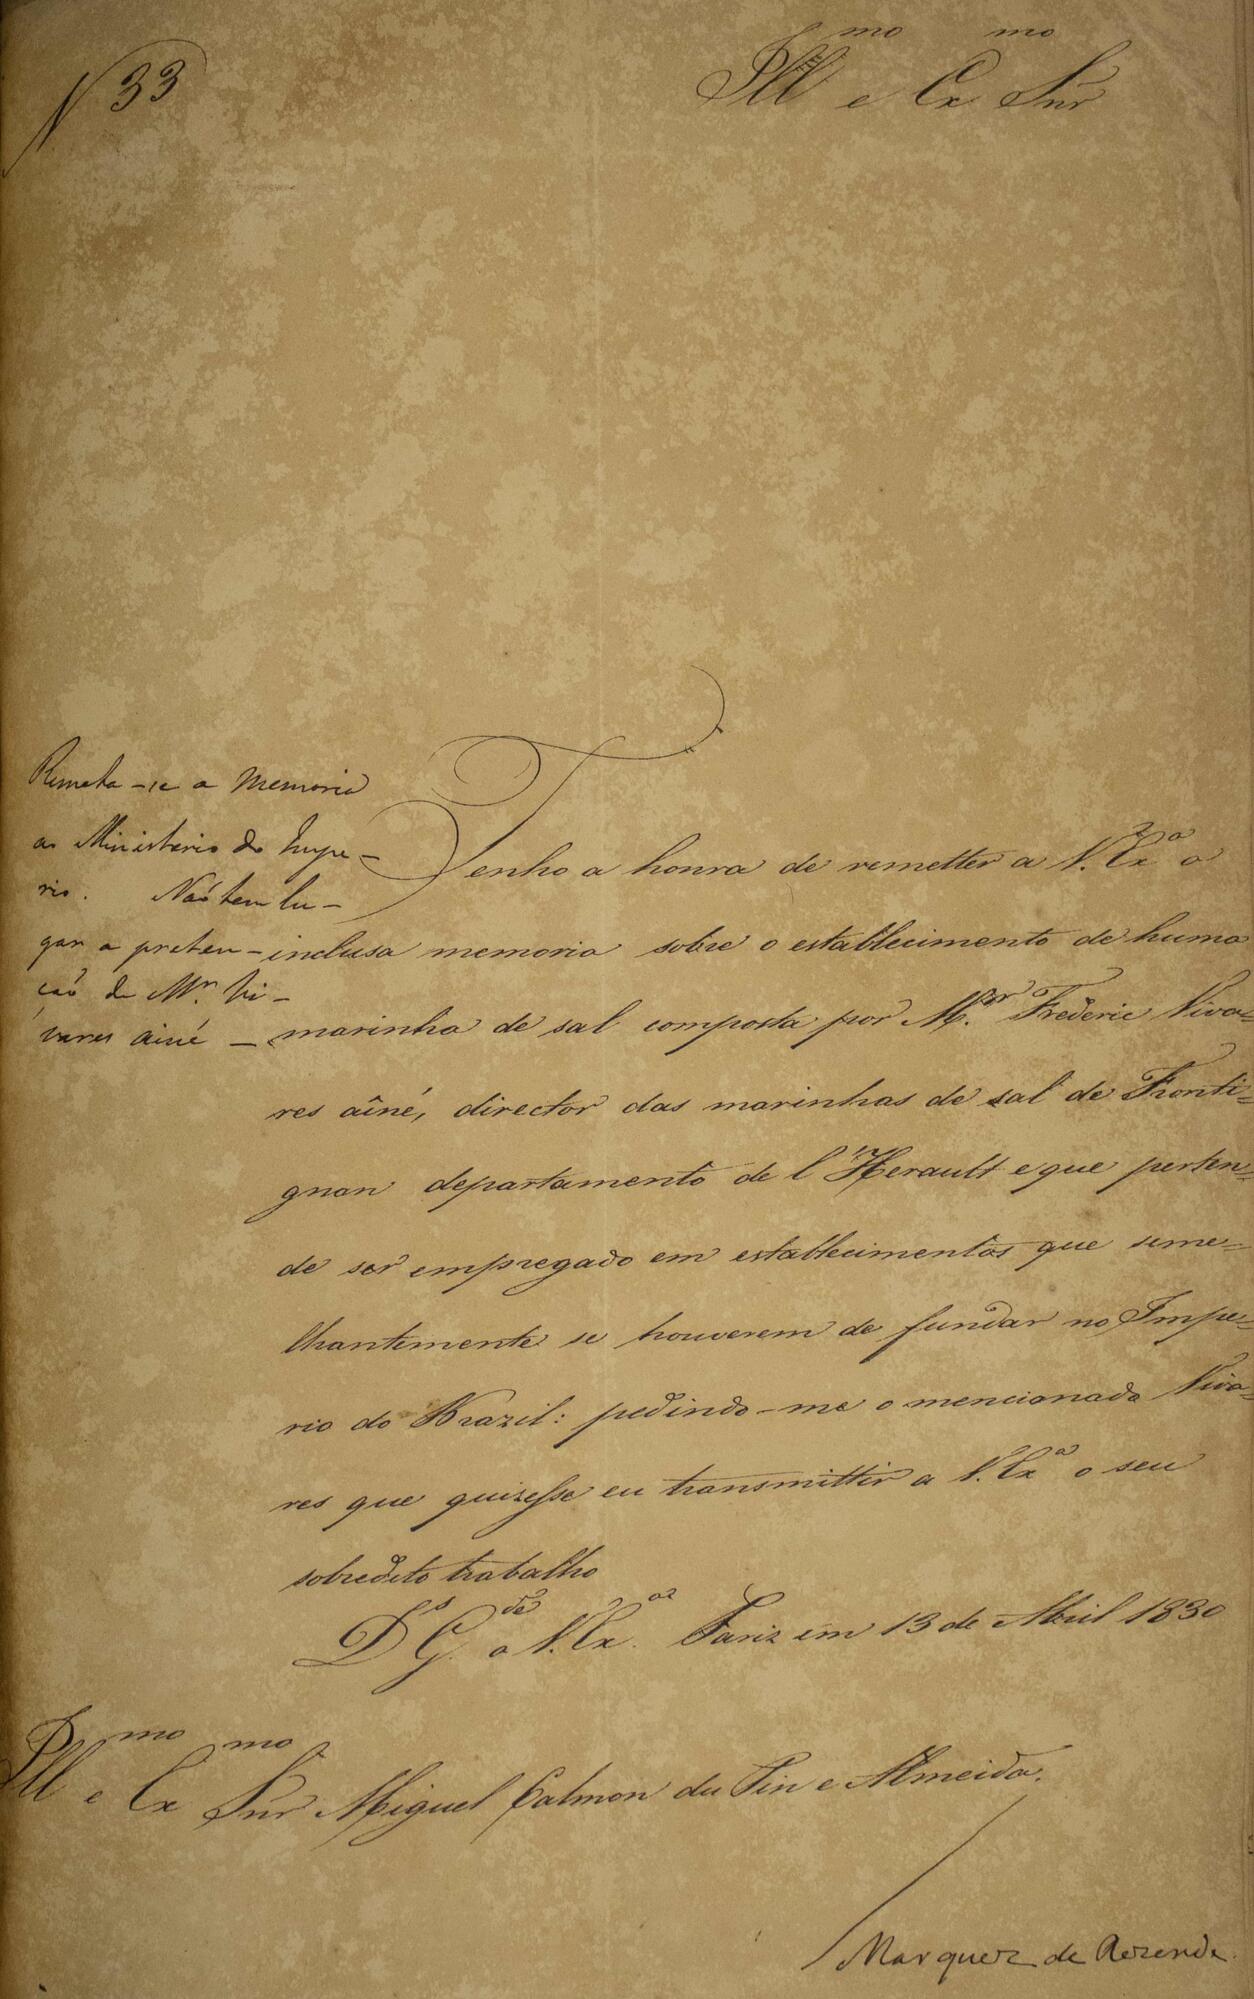 N 33
Ill.mo e Ex.mo Snr
Remeta-se a Memoria
ao Ministerio do Impe-
rio. Naó tem lu-
gar a preten-
çaó de Mr. Vi-
vares ainé -
Tenho a honra de remetter a V. Ex.a a
inclusa memoria sobre o establecimento de huma
marinha de sal composta por M.sr Frederic Viva=
res aîné, director das marinhas de sal de Fronti=
gnan departamento de l'Herault e que perten=
de ser empregado em establecimentos que seme=
lhantemente se houverem de fundar no Impe=
rio do Brazil: pedindo-me o mencionado Viva=
res que quizesse eu transmittir a V. Ex.a o seu
sobredito trabalho
D.s G.de a V. Ex.a Pariz em 13 de Abril 1830
Ill.mo e Ex.mo Snr Miguel Calmon du Pin e Almeida.
Marquez de Rezende.